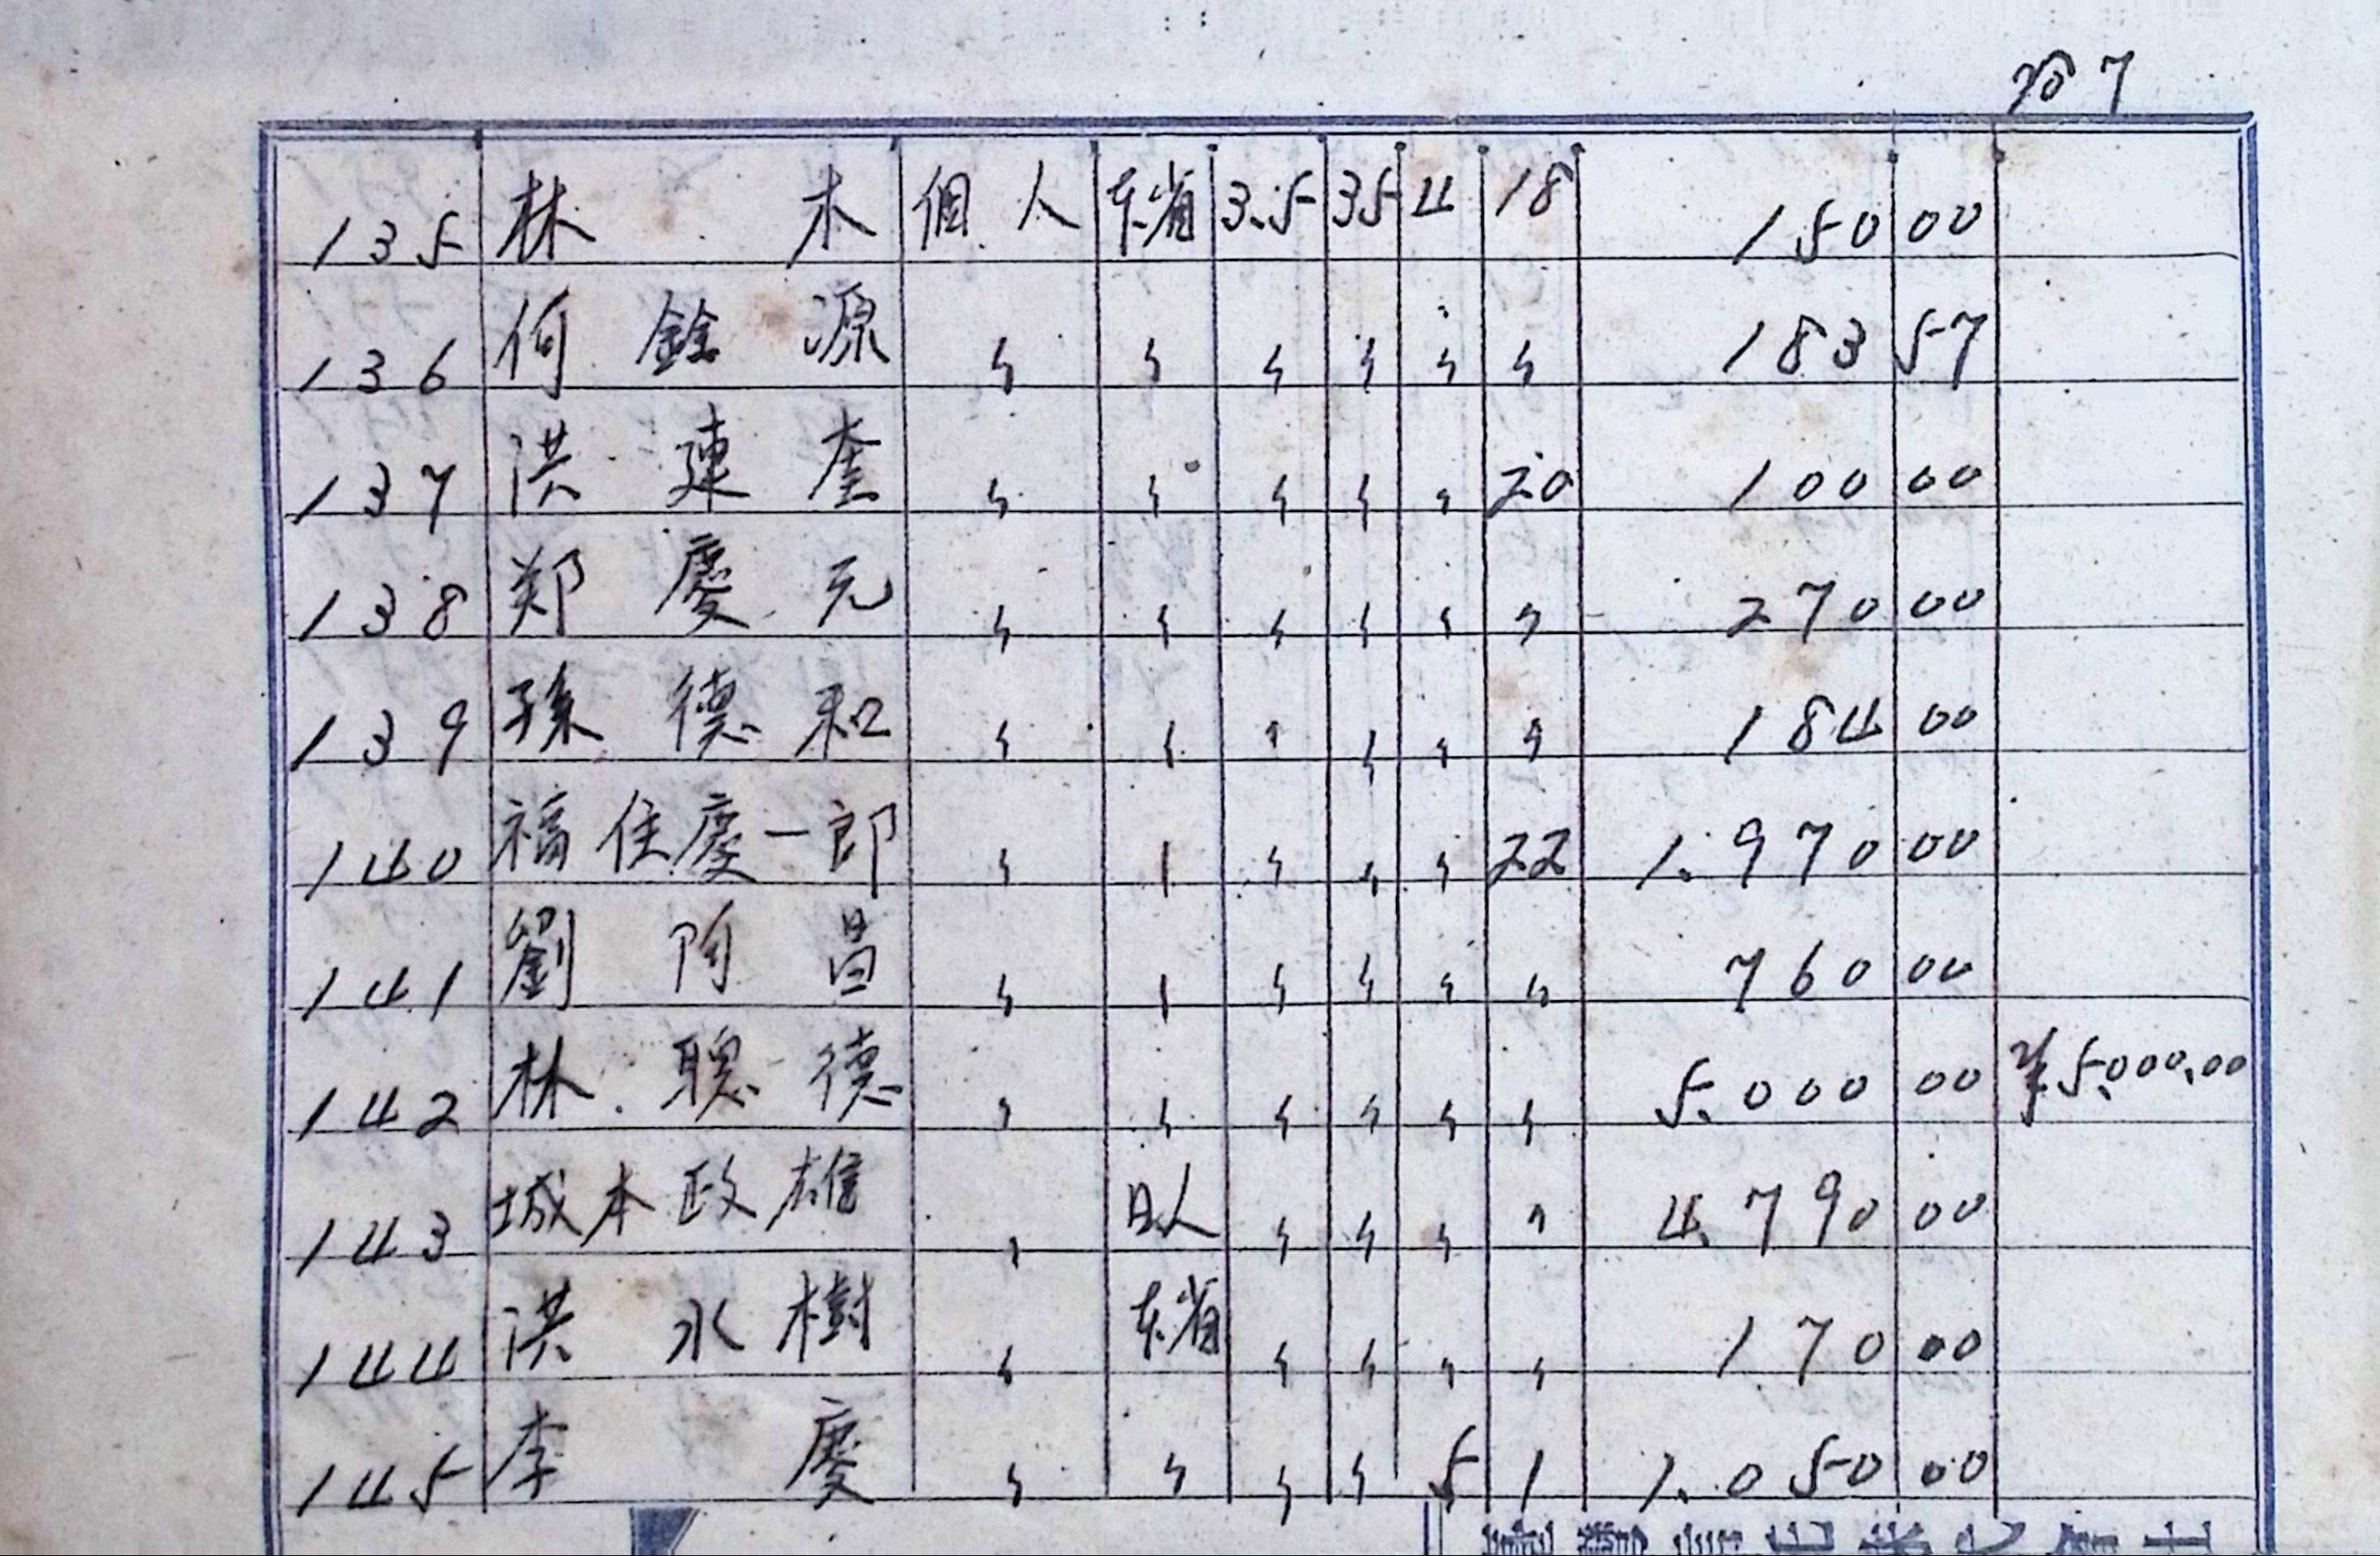 7
135 林 木 個人 本省 3.5 35 4 18 150 00
136 何銓源 〃 〃 〃 〃 〃 〃 183 57
137 洪連奎 〃 〃 〃 〃 〃 20 100 00
138 郑慶元 〃 〃 〃 〃 〃 〃 270 00
139 孫德和 〃 〃 〃 〃 〃 〃 184 00
140 福住慶一郎 〃 〃 〃 〃 〃 22 1.970 00
141 劉阿昌 〃 〃 〃 〃 〃 〃 760 00
142 林聰德 〃 〃 〃 〃 〃 〃 5.000 00 ¥5.000.00
143 城本政雄 〃 日人 〃 〃 〃 〃 4.790 00
144 洪水樹 〃 本省 〃 〃 〃 〃 170 00
145 李慶 〃 〃 〃 〃 5 1 1.050 00